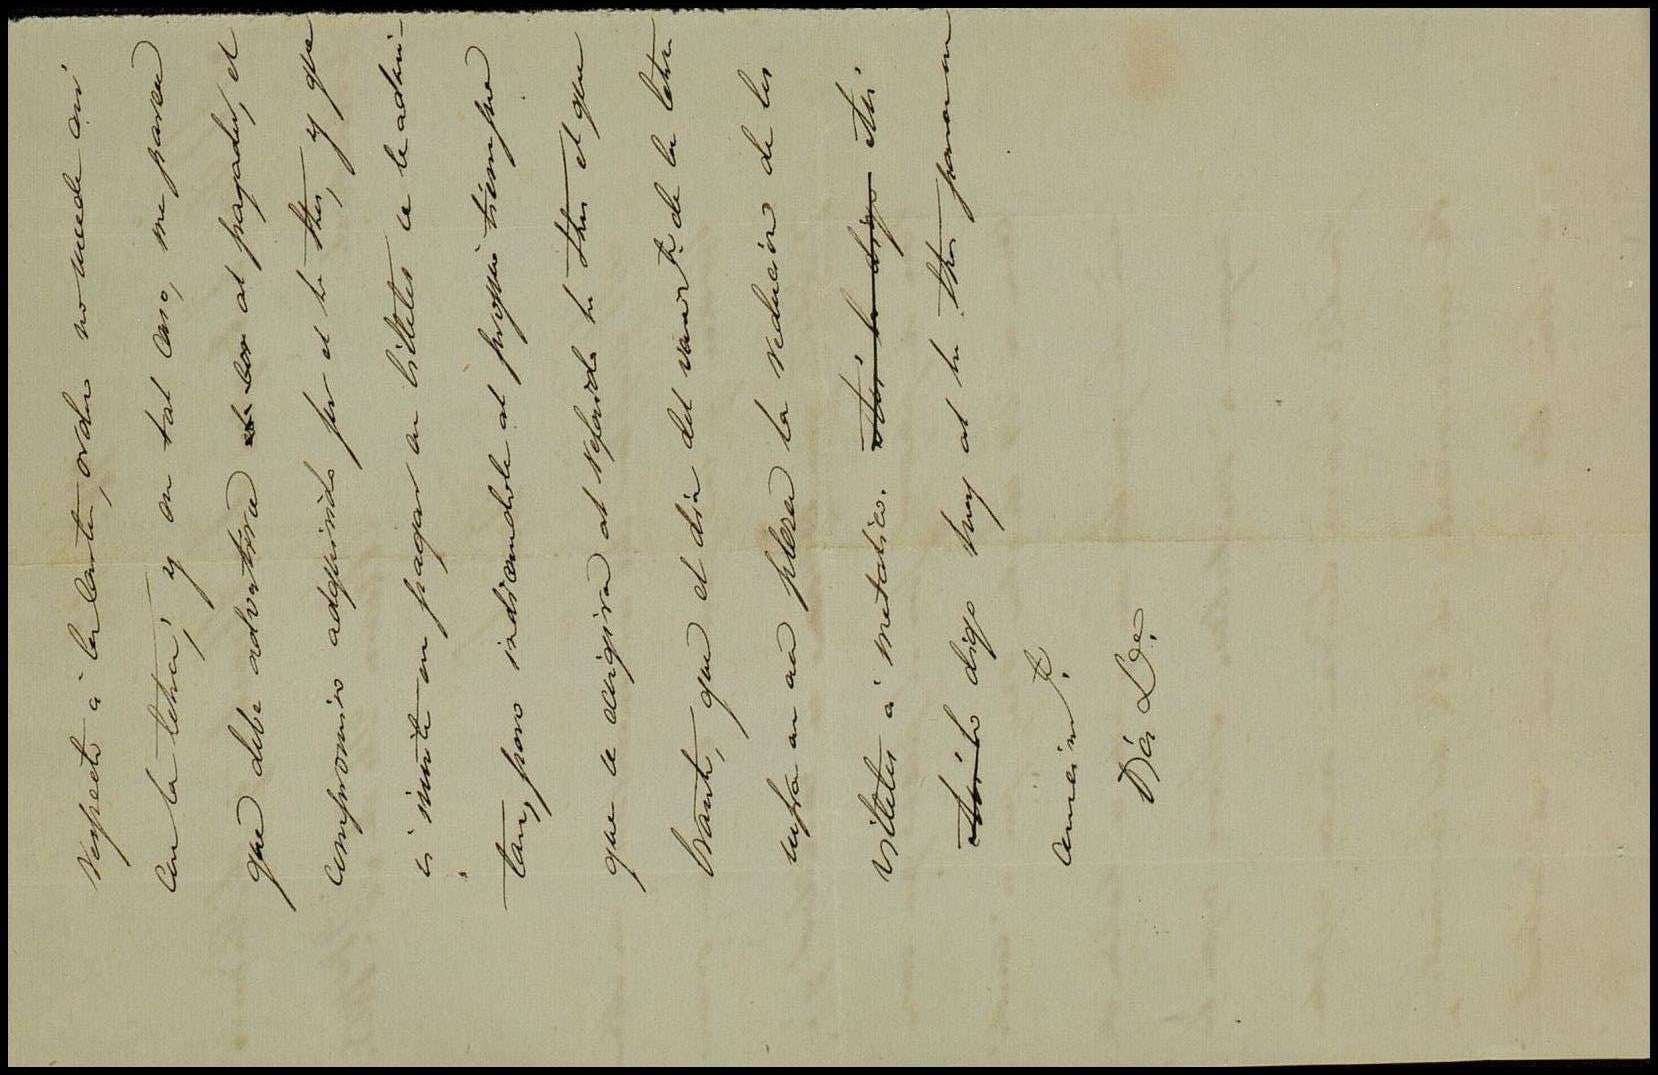 respecto á la Carta, orden no sucede asi
con la letra; y en tal caso, me parece
que debe advertirse al pagador, el
compromiso adquirido por el tio Thes, y que
si insiste en pagar en billetes se le admi-
tan, pero indicandole al propio tiempo
que se exigira al referido tio Thes el que-
branto, que el dia del vencimto. de la letra
sufra en esa plaza la reduccion de los
billetes á metalico. Asi lo digo Asi
Asi lo digo hoy al tio Thes para su
conocimto.
Dios Gue.